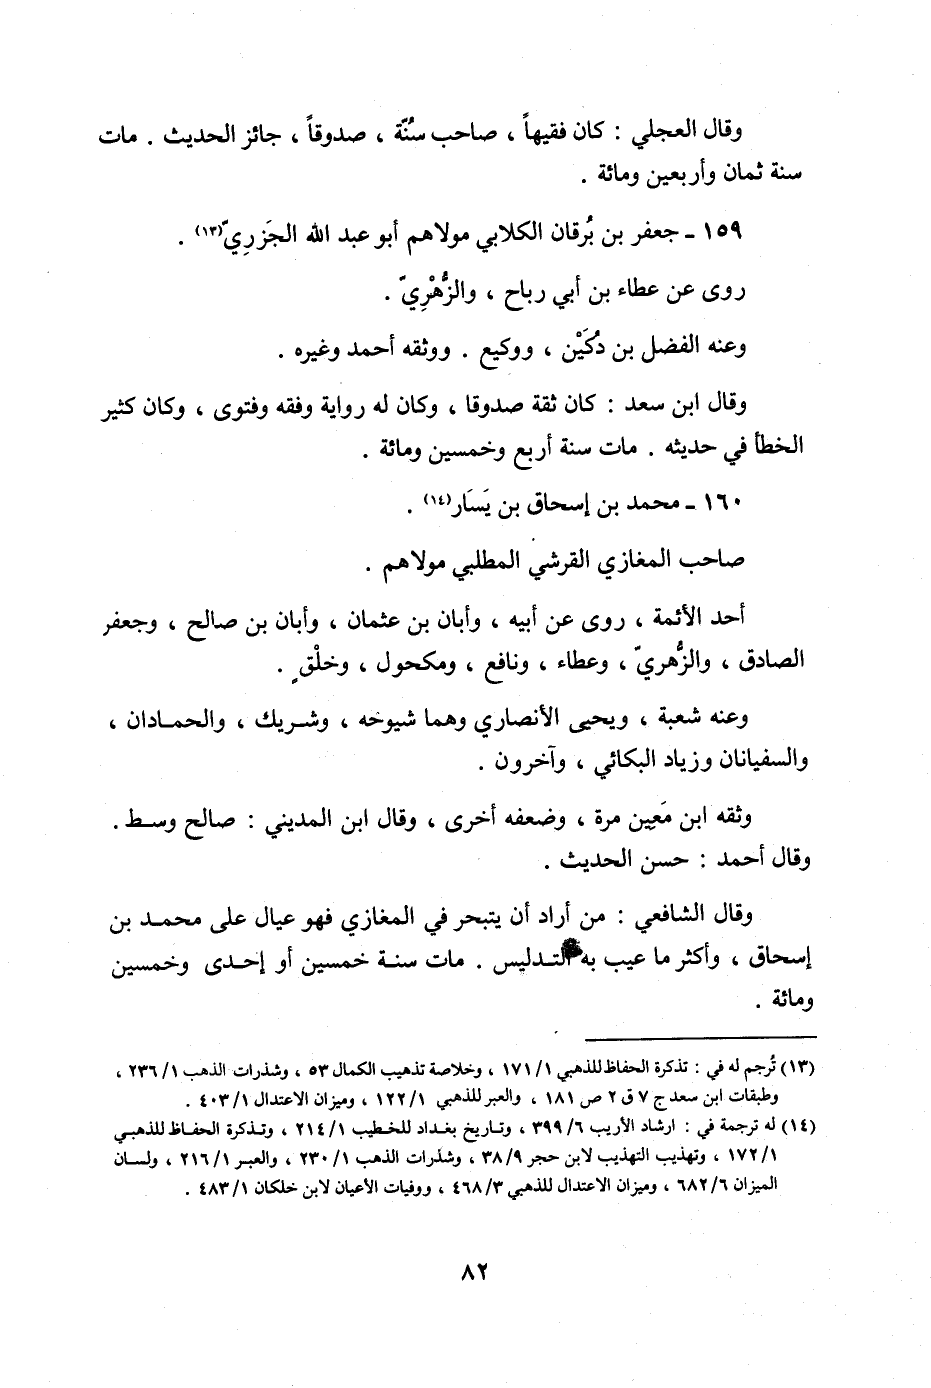 وقال العجلي : كان فقيهاً ، صاحب سُنّة ، صدوقاً ، جائز الحديث . مات
سنة ثمان وأربعين ومائة .
١٥٩ ـ جعفر بن بُرقان الكلابي مولاهم أبو عبد الله الجَزرِيّ(١٣) .
روى عن عطاء بن أبي رباح ، والزُّهْرِيّ .
وعنه الفضل بن دُكَيْن ، ووكيع . ووثقه أحمد وغيره .
وقال ابن سعد : كان ثقة صدوقا ، وكان له رواية وفقه وفتوى ، وكان كثير
الخطأ في حديثه . مات سنة أربع وخمسين ومائة .
١٦٠ ـ محمد بن إسحاق بن يَسَار(١٤) .
صاحب المغازي القرشي المطلبي مولاهم .
أحد الأئمة ، روى عن أبيه ، وأبان بن عثمان ، وأبان بن صالح ، وجعفر
الصادق ، والزُّهريّ ، وعطاء ، ونافع ، ومكحول ، وخلْقٍ .
وعنه شعبة ، ويحيى الأنصاري وهما شيوخه ، وشريك ، والحمادان ،
والسفيانان وزياد البكائي ، وآخرون .
وثقه ابن مَعِين مرة ، وضعفه أخرى ، وقال ابن المديني : صالح وسط .
وقال أحمد : حسن الحديث .
وقال الشافعي : من أراد أن يتبحر في المغازي فهو عيال على محمد بن
إسحاق ، وأكثر ما عيب به التدليس . مات سنة خمسين أو إحدى وخمسين
ومائة .
(١٣) تُرجم له في : تذكرة الحفاظ للذهبي ١/ ١٧١ ، وخلاصة تذهيب الكمال ٥٣ ، وشذرات الذهب ١/ ٢٣٦ ،
وطبقات ابن سعد ج ٧ ق ٢ ص ١٨١ ، والعبر للذهبي ١/ ١٢٢ ، وميزان الاعتدال ١/ ٤٠٣ .
(١٤) له ترجمة في : ارشاد الأريب ٦/ ٣٩٩ ، وتاريخ بغداد للخطيب ١/ ٢١٤ ، وتذكرة الحفاظ للذهبي
١/ ١٧٢ ، وتهذيب التهذيب لابن حجر ٩/ ٣٨ ، وشذرات الذهب ١/ ٢٣٠ ، والعبر ١/ ٢١٦ ، ولسان
الميزان ٦/ ٦٨٢ ، وميزان الاعتدال للذهبي ٣/ ٤٦٨ ، ووفيات الأعيان لابن خلكان ١/ ٤٨٣ .
٨٢